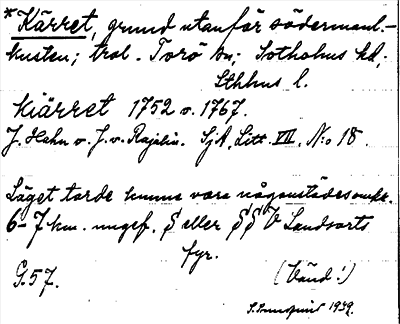 * Kärret, grund utanför södermanl.-
kusten; trol. Torö sn; Sotholms hd;
Sthlms l.
Kiärret 1752 o. 1767.
J. Hahn o. J. v. Rajalin. SjA, Litt. VII, N:o 18.
Läget torde kunna vara någonstädes omkr.
6-7 km. ungef. S eller SSV Landsorts
fyr.
G. 57.
(Vänd!)
1939.